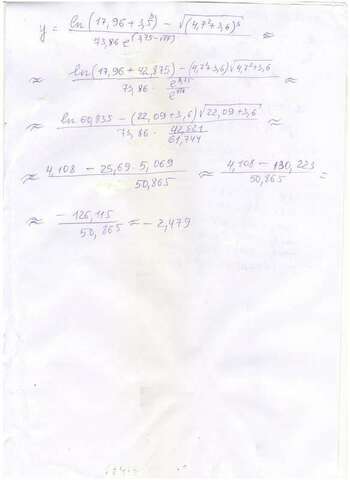 y = (ln(17,96 + 3,5³) − √((4,7² + 3,6)³)) / (73,86 e^(3,75 − √17)) ≈
≈ (ln(17,96 + 42,875) − (4,7² + 3,6)√(4,7² + 3,6)) / (73,86 · e^3,75 / e^√17) ≈
≈ (ln 60,835 − (22,09 + 3,6)√(22,09 + 3,6)) / (73,86 · 42,521 / 61,744) ≈
≈ (4,108 − 25,69 · 5,069) / 50,865 ≈ (4,108 − 130,223) / 50,865 =
≈ −126,115 / 50,865 ≈ − 2,479